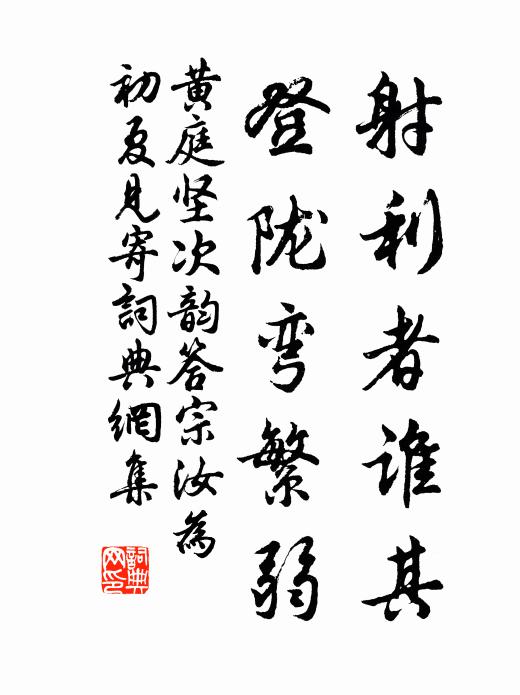 射利者谁其
登陇弯繁弱
黄庭坚次韵答宗汝為
初夏见寄詞典網集
詞典网印